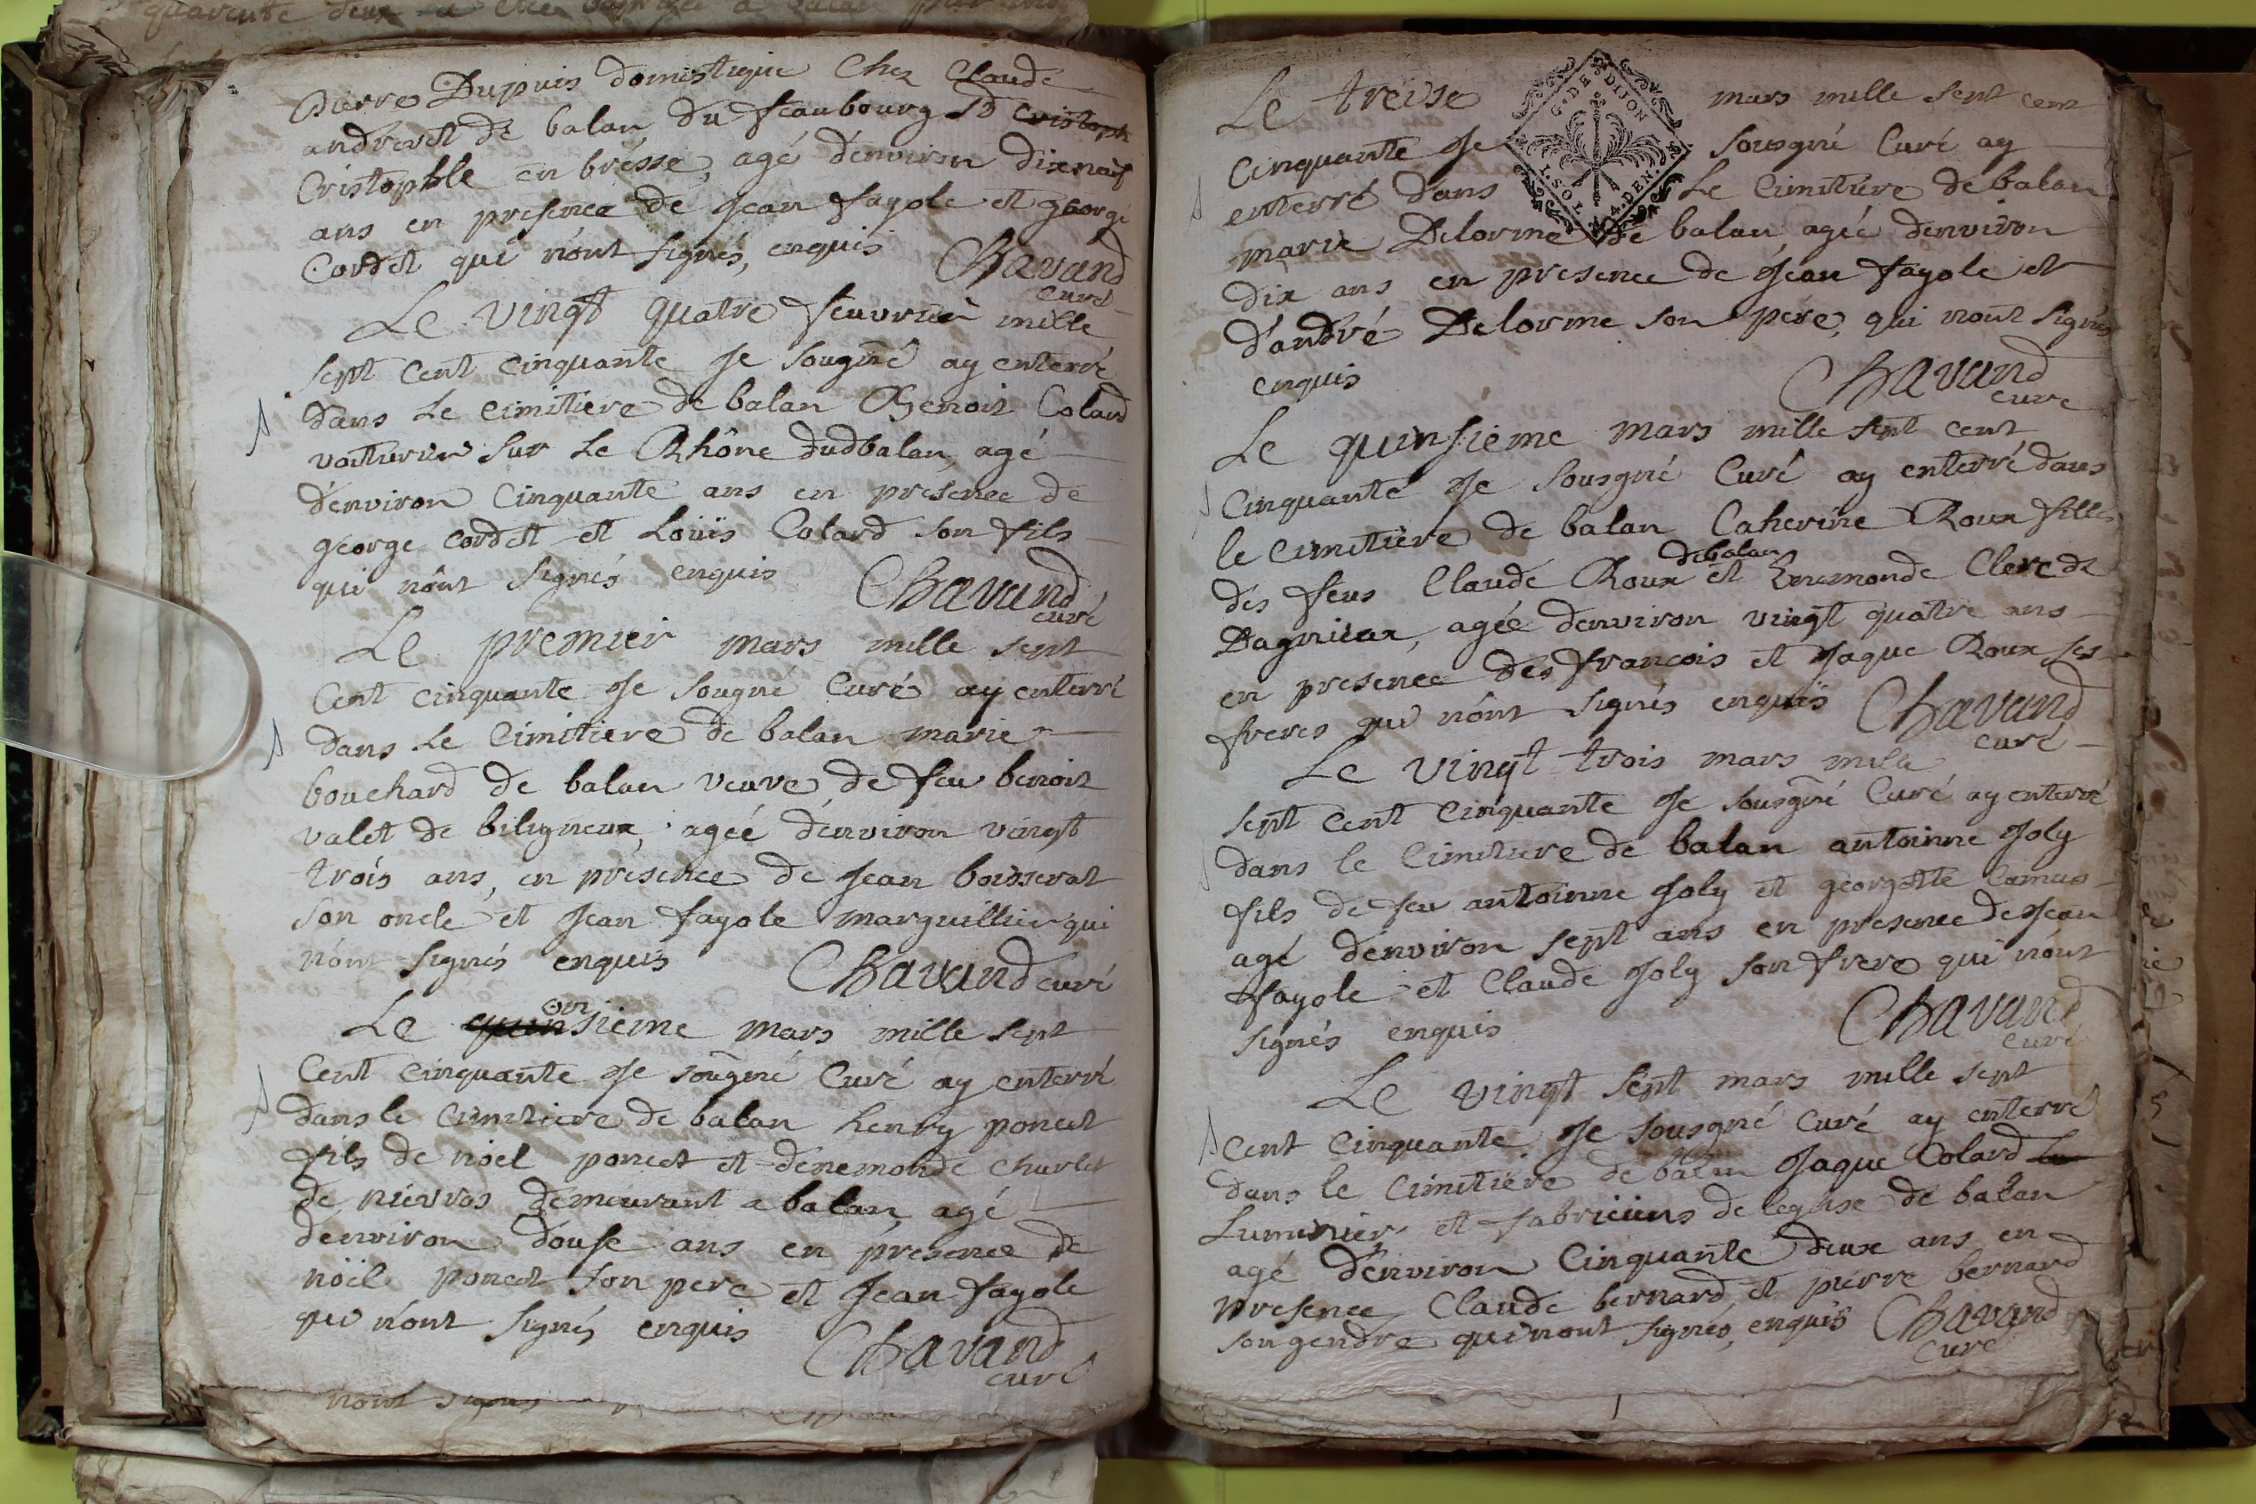 quarente deux a
Pierre Dupuis domistique Chez Claude
andrevet de balan du feaubourg St cristoph
Cristophle en brésse, agé d'environ dixneuf
ans en presence de Jean fayole et george
Cordet qui n'ont signés, enquis Chavand
curé
Le vingt quatre feuvrier mille
sept cent cinquante Je sougné ay enterré
dans Le cimitiere de balan Benoit Colard
voiturier sur Le Rhône dudbalan, agé
d'environ Cinquante ans en presence de
george cordet et Loüis Colard son fils
qui nônt signés enquis Chavand
curé
Le premier mars mille sept
Cent cinquante Je sougné Curé ay enterré
dans Le Cimitiere de balan marie
bouchard de balan veuve de feu benoit
valet de biligneux, agéé d'environ vingt
trois ans, en presence de Jean boisserat
son oncle et Jean fayole marguillier qui
nónt signés enquis Chavand curé
Le quinsieme on mars mille sept
Cent cinquante Je sougné Curé ay enterré
dans le cimitiere de balan henry poncet
fils de nöel poncet et dénemonde charlet
de nievros demeurant a balan, agé
d'environ douse ans en presence de
nöel poncet son pere et Jean fayole
qui n'ont signés enquis Chavand
curé
nont signés
Le treise mars mille sept cent
G. DE DIJON
1. SOL 4. DEN.
Cinquante Je sousgné Curé ay
enterré dans Le Cimitiere de balan
marie Delorme de balan agéé denviron
dix ans en presence de Jean fayole et
d'andré Delorme son pére, qui n'ont signés
enquis Chavand
curé
Le quinsieme mars mille sept cent
Cinquante Je sousgné Curé ay enterré dans
le cimitiere de balan Caherine Roux fille
des feus Claude Roux de balan et Ennemonde Clerc de
Dagnieux, agée denviron vingt quatre ans
en presence dés francois et Jaque Roux ses
freres qui nónt signés enquis Chavand
curé
Le vingt trois mars mille
sept cent Cinquante Je sousgné Curé ay enterré
dans le Cimitiere de balan antoinne Joly
fils de feu antoinne Joly et georgette Camus
agé d'énviron sept ans en presence de Jean
fayole et Claude Joly son frere qui nónt
signés enquis Chavand
curé
Le vingt sept mars mille sept
cent Cinquante Je sousgné Curé ay enterré
dans le Cimitiere de balan Jaque Colard Lu
Luminier et fabriciens de leglise de balan
agé d'énviron Cinquante deux ans en
presence Claude bernard et pierre bernard
son gendre qui nont signés, enquis Chavand
curé